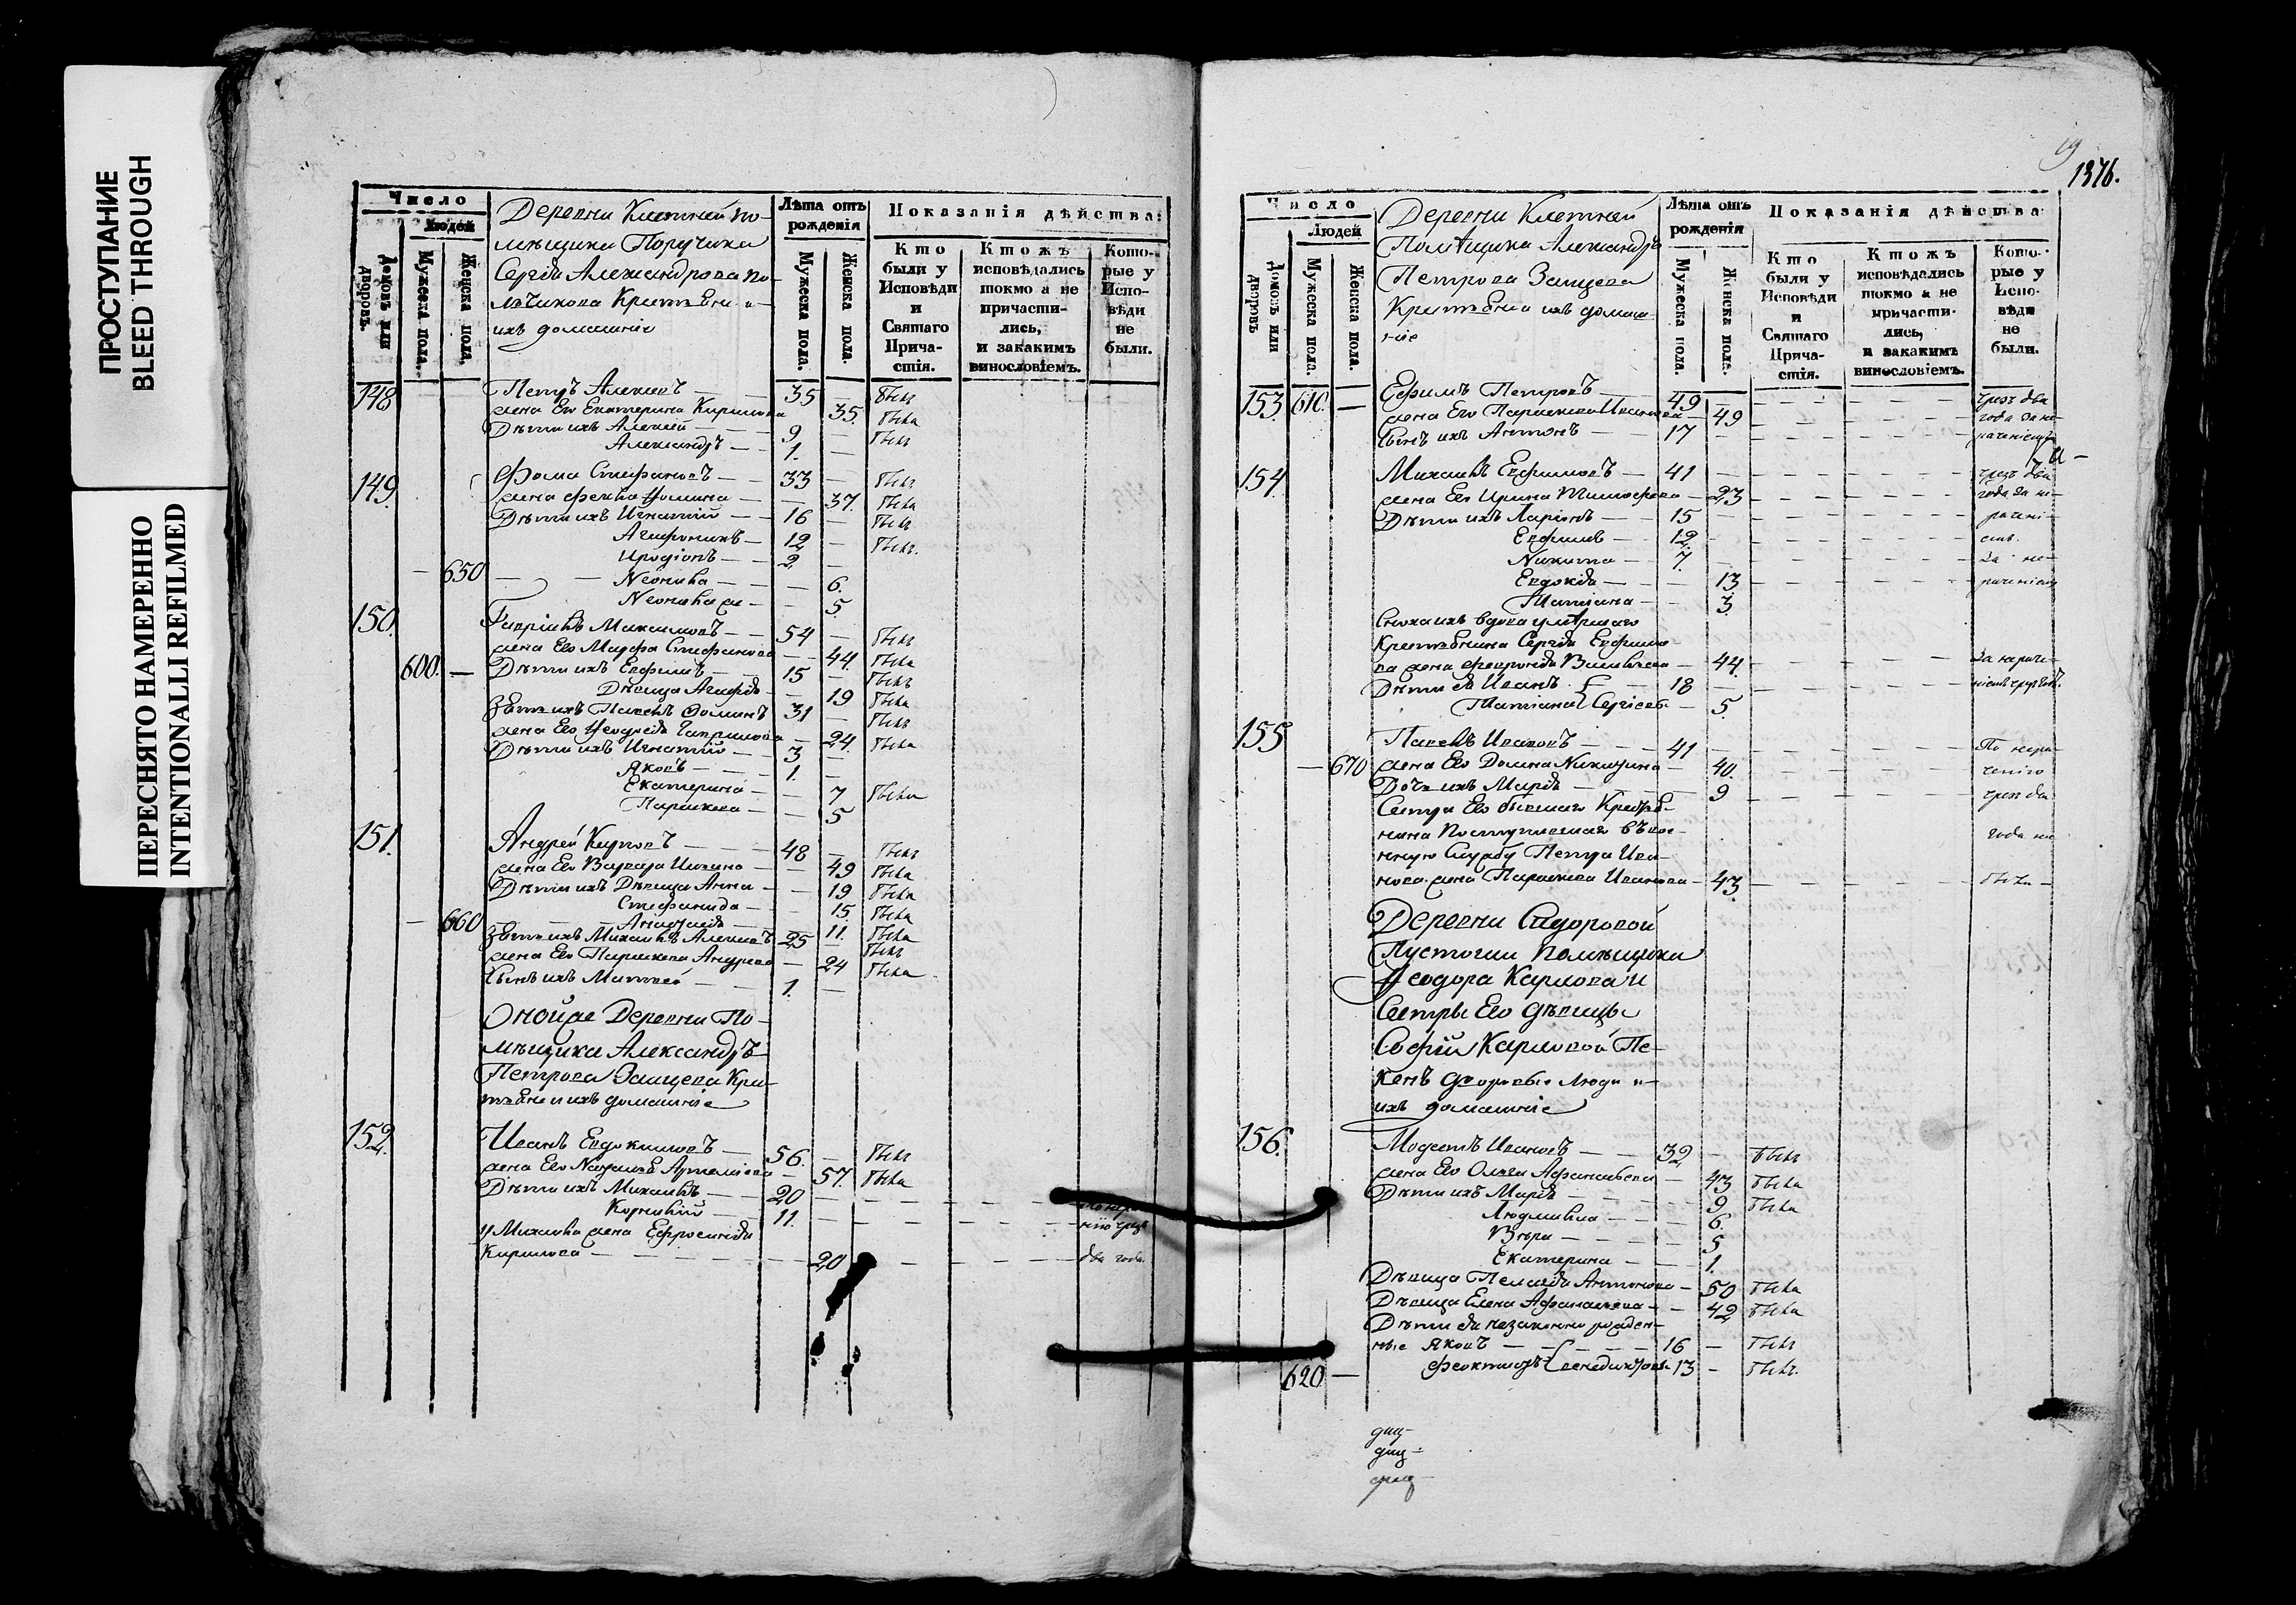 ПРОСТУПАНИЕ
BLEED THROUGH
ПЕРЕСНЯТО НАМЕРЕННО
INTENTIONALLI REFILMED
Число
Людей
Домовъ или дворовъ.
Мужеска пола.
Женска пола.
Деревни Клетней по-
мѣщика Поручика
Сергѣя Александрова По-
Крестьяне и
ихъ домашніе
Лѣта отъ рожденія
Мужеска пола.
Женска пола.
Показанія дѣйства:
Кто были у Исповѣди и Святаго Причастія.
Ктожъ исповѣдались токмо а не причастились, и закакимъ винословіемъ.
Которые у Исповѣди не были.
148 Петръ Алексѣевъ — 35 былъ
жена Его Екатерина Кирилова 35. была
Дѣти ихъ Алексѣй — 9 — былъ
Александръ — 1. —
149. Фома Стефановъ — 33 — былъ
жена Фекла Фомина — 37. была
Дѣти ихъ Игнатій — 16 — былъ
Агафоникъ — 12 — былъ.
Иродіонъ — 2 —
— 650 — Неонила — 6.
Неонила — 5.
150. Гавріилъ Максимовъ — 54 — былъ
жена Его Марфа Стефанова — 44. была
600. — Дѣти ихъ Евфимъ — 15 — былъ
Дѣвица Агафья — 19 была
Зять ихъ Павелъ Фоминъ 31 — былъ
жена Его Гаврилова — 24. была
Дѣти ихъ Игнатій — 3 —
Яковъ — 1. —
Екатерина — 7 была
Параскева — 5
151. Андрей Карповъ — 48 — былъ
жена Его Варвара — 49 была
Дѣти ихъ Дѣвица Анна — 19 была
Стефанида — 15. была
— 660 — 11. была
Зять ихъ Михаилъ Алексѣевъ 25 — былъ
жена Его Параскева Андреева — 24 была
Сынъ ихъ Матвей — 1. —
Онойже Деревни По-
мѣщика Александра
Петрова Зайцева Кре-
стьяне и ихъ домашніе
152. Иванъ Евдокимовъ — 56. — былъ
жена Его Наталья Артемьева 57. была
Дѣти ихъ Михаилъ — 20 —
Корнилій — 11. —
у Михаила жена Ефросинія
Кирилова — 20 — два года
19
1376.
Число
Людей
Домовъ или дворовъ
Мужеска пола.
Женска пола.
Деревни Клетней
Помѣщика Александра
Петрова Зайцева
Крестьяне и ихъ домаш-
ніе
Лѣта отъ рожденія
Мужеска пола.
Женска пола.
Показанія дѣйства
Кто были у Исповѣди и Святаго Причастія.
Ктожъ исповѣдались токмо а не причастились, и закакимъ винословіемъ.
Которые у Исповѣди не были.
153 610. — Ефимъ Петровъ — 49 — чрезъ два
жена Его Параскева Иванова — 49 — года за не-
Сынъ ихъ Антонъ — 17 — раченіемъ
154 Михаилъ Евфимовъ — 41 — чрезъ два
жена Его Ирина Тимофеева — 23 — года за не-
Дѣти ихъ Ларіонъ — 15 — рачені-
Евфимъ — 12 — емъ.
Никита — 7 — За не-
Евдокія — 13 — раченіемъ
Татіана — 3.
Сноха ихъ вдова умершаго
Крестьянина Сергѣя Евфимо-
ва жена Февронія Васильева — 44. — За нераче-
Дѣти ея Иванъ — 18 — ніемъ
Татіана Сергіевы — 5.
155 Павелъ Ивановъ — 41 — По нера-
— 670 жена Его Домна Никитина — 40. — ченію
Дочь ихъ Марья — 9 — чрезъ два
Сестра Его бывшаго Крестья-
нина Поступившаго въ вое- года не
нную Службу Петра Ива-
нова жена Параскева Иванова — 43. — была —
Деревни Сидоровой
Пустоши помѣщика
Феодора Карлова и
Сестры Его дѣвицы
Софіи Карловой Пе-
кенъ дворовые люди и
ихъ домашніе
156. Модестъ Ивановъ — 32 — былъ
жена Его Ольга Афанасьева — 43 была
Дѣти ихъ Марья — 9 была
Людмила — 6.
Вѣра — 5
Екатерина — 1.
Дѣвица Пелагея Антонова — 50 была
Дѣвица Елена Афанасьева — 42 была
Дѣти ея незаконно рожден-
ные Яковъ — 16 — былъ
620 — Феоктистъ Венедиктовы 13 — былъ.